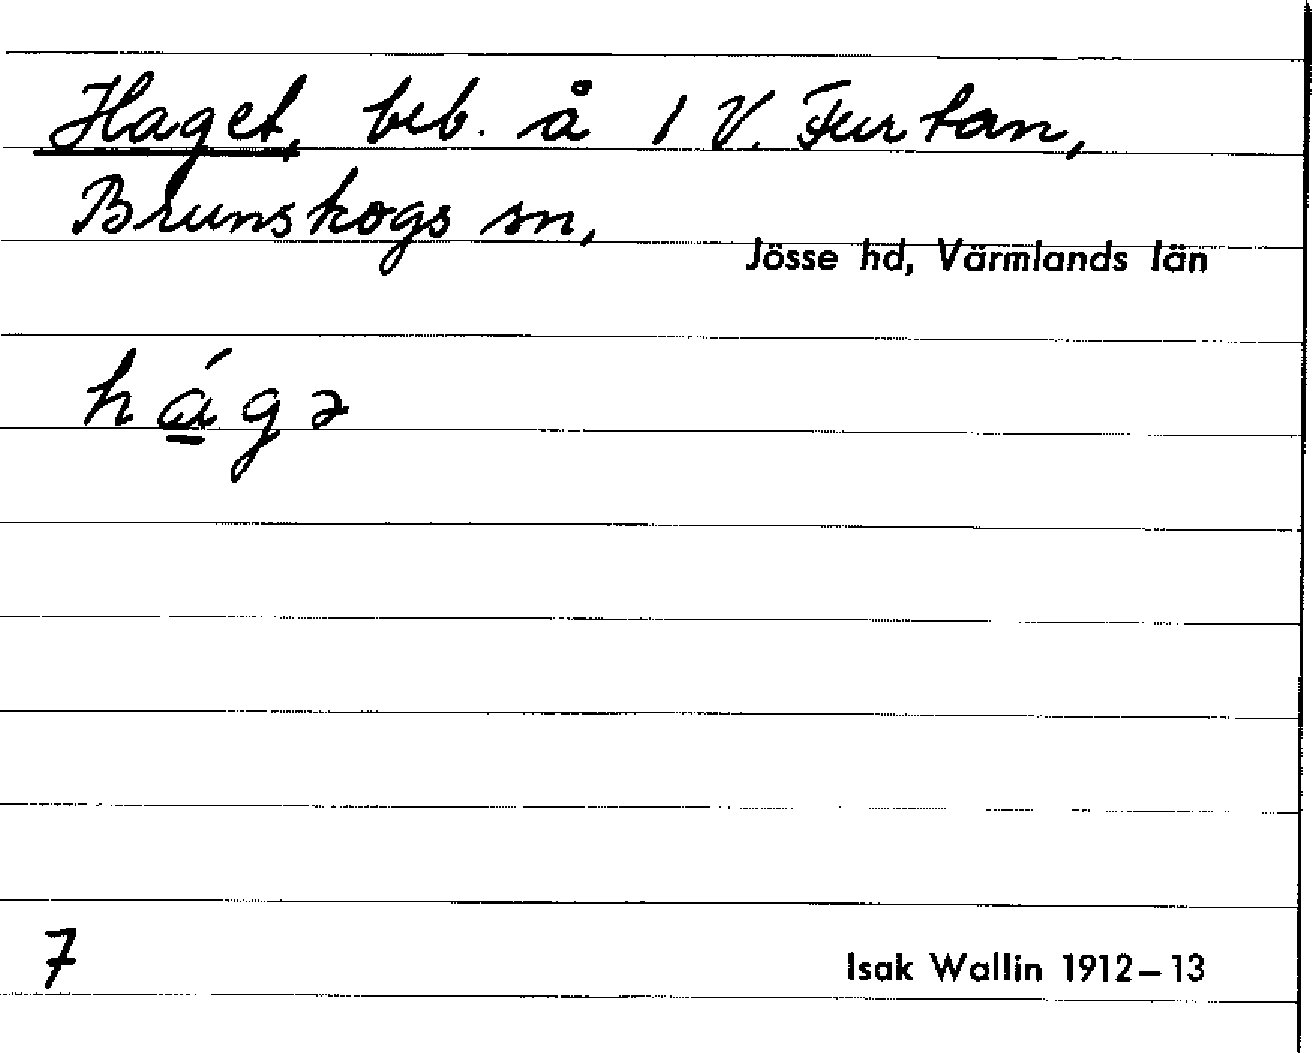 Haget, beb. å 1 V. Furtan,
Brunskogs sn,
Jösse hd, Värmlands län
há̱gə
7
Isak Wallin 1912–13